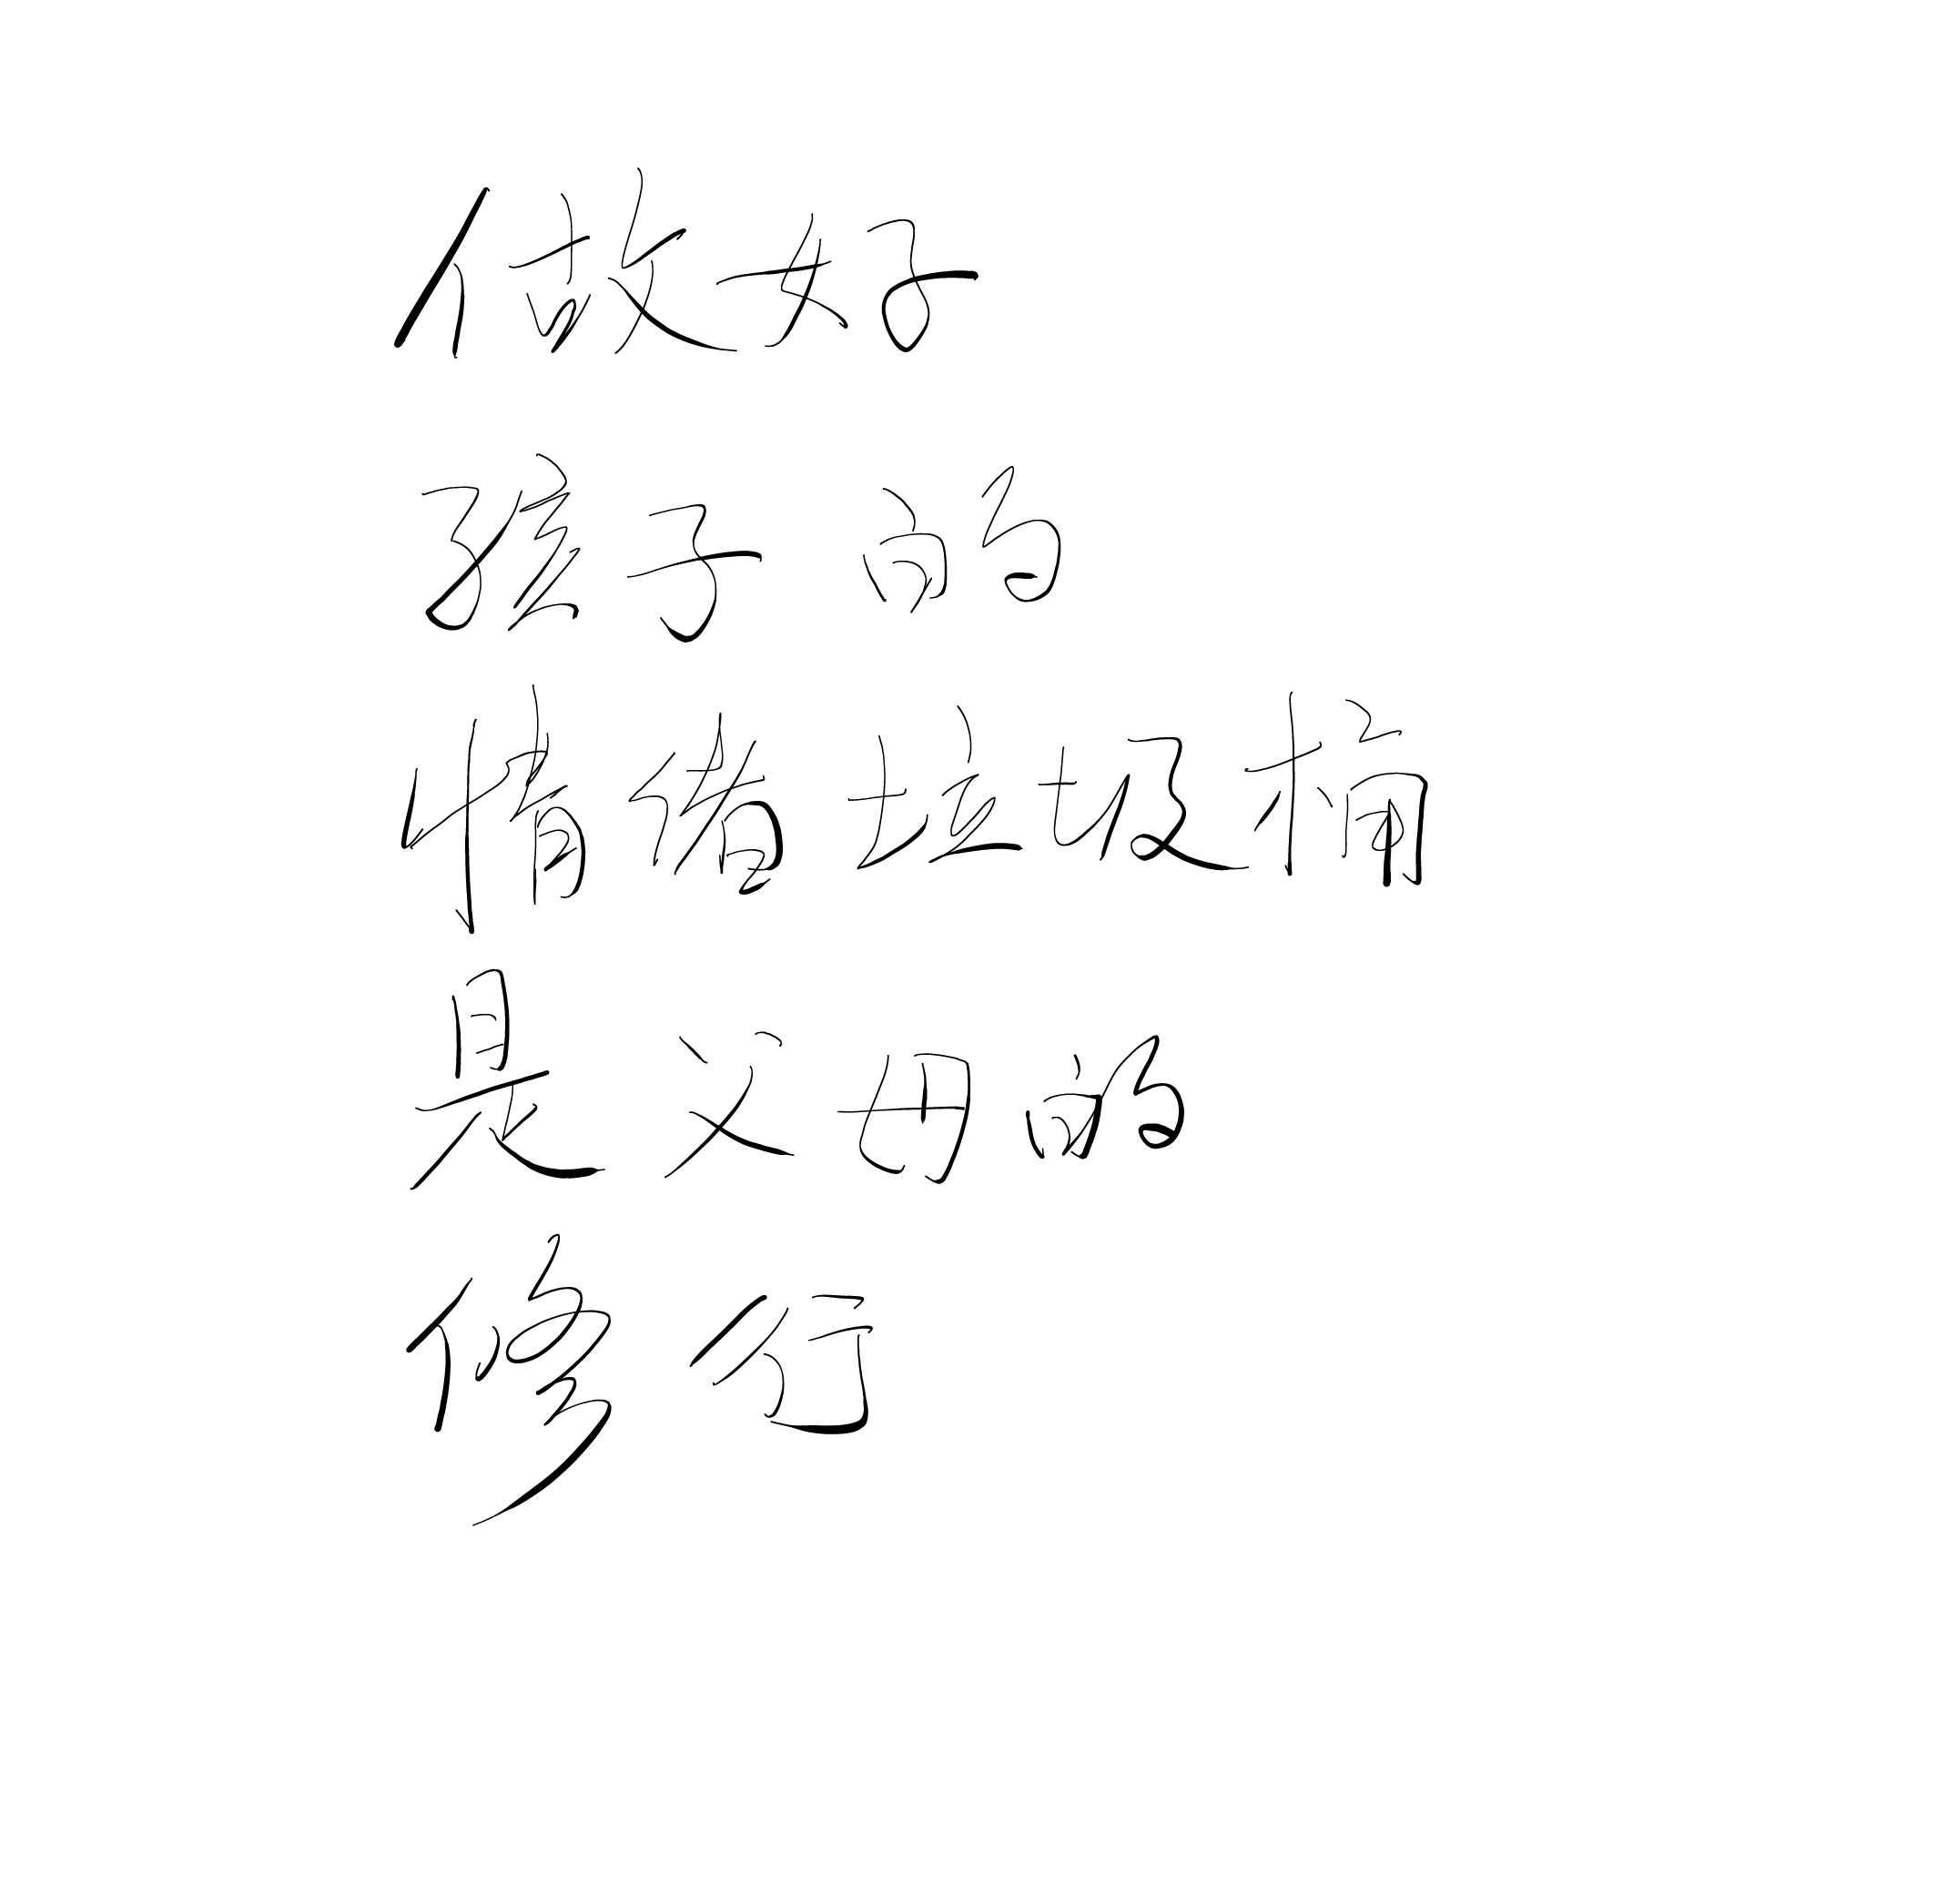 做好
孩子的
情绪垃圾桶
是父母的
修行